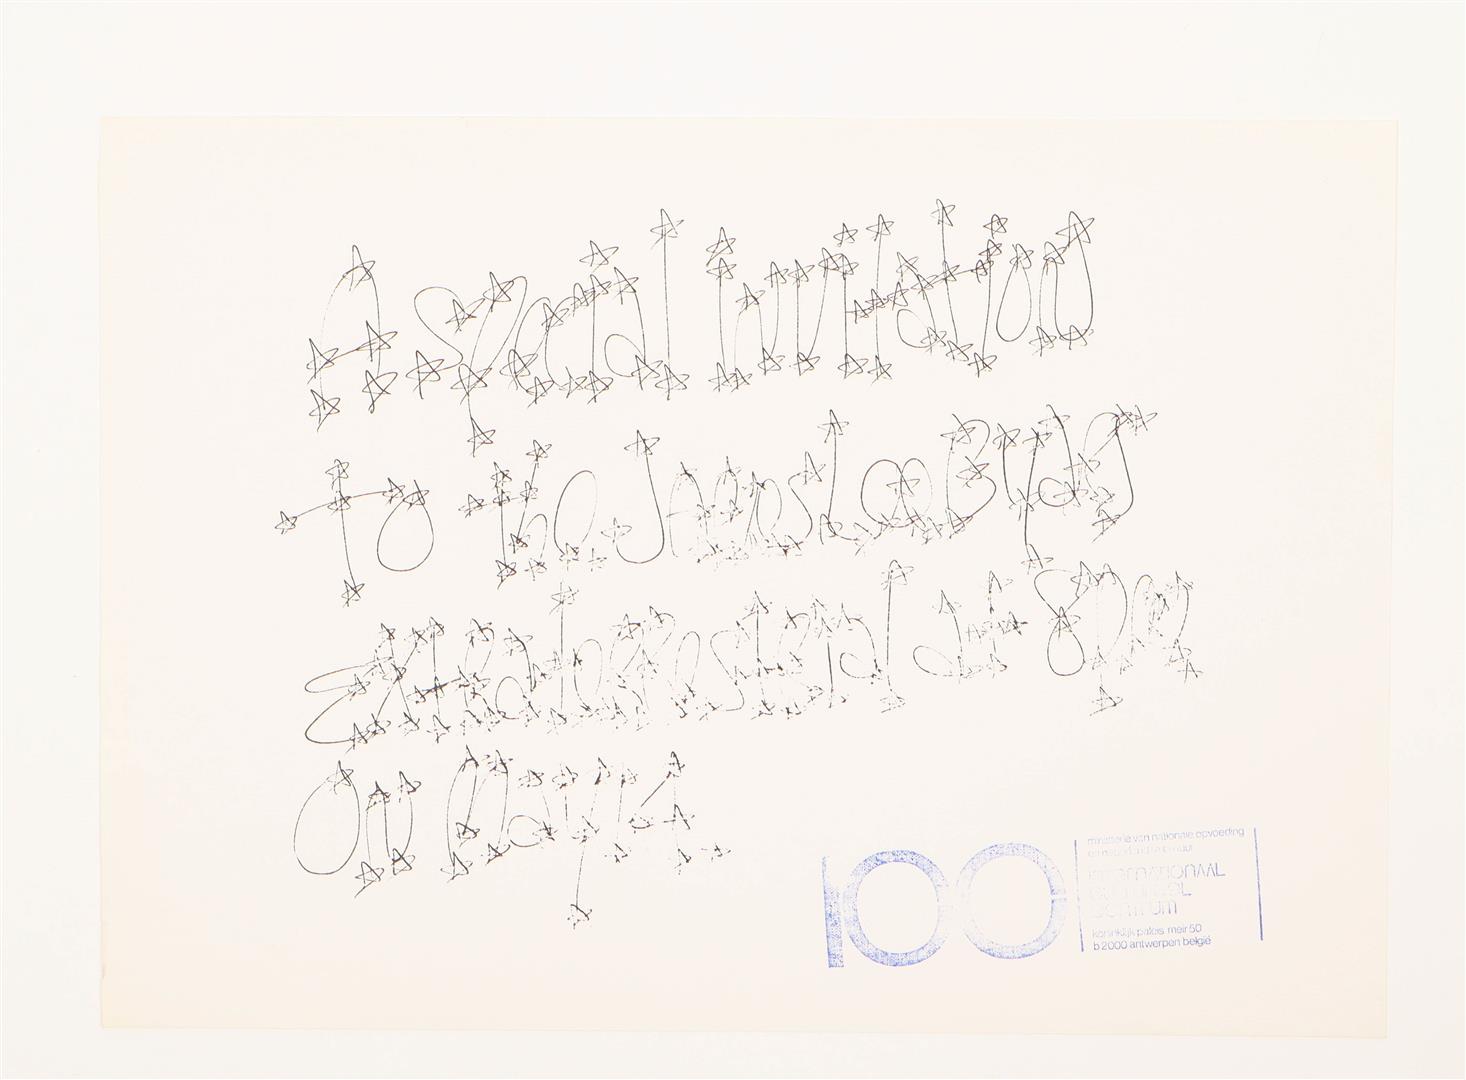 A special invitation
to the James Lee Byars
at 8 pm
on May
ministerie van nationale opvoeding
en nederlandse cultuur
INTERNATIONAAL
CULTUREEL
CENTRUM
koninklijk paleis meir 50
b 2000 antwerpen belgië